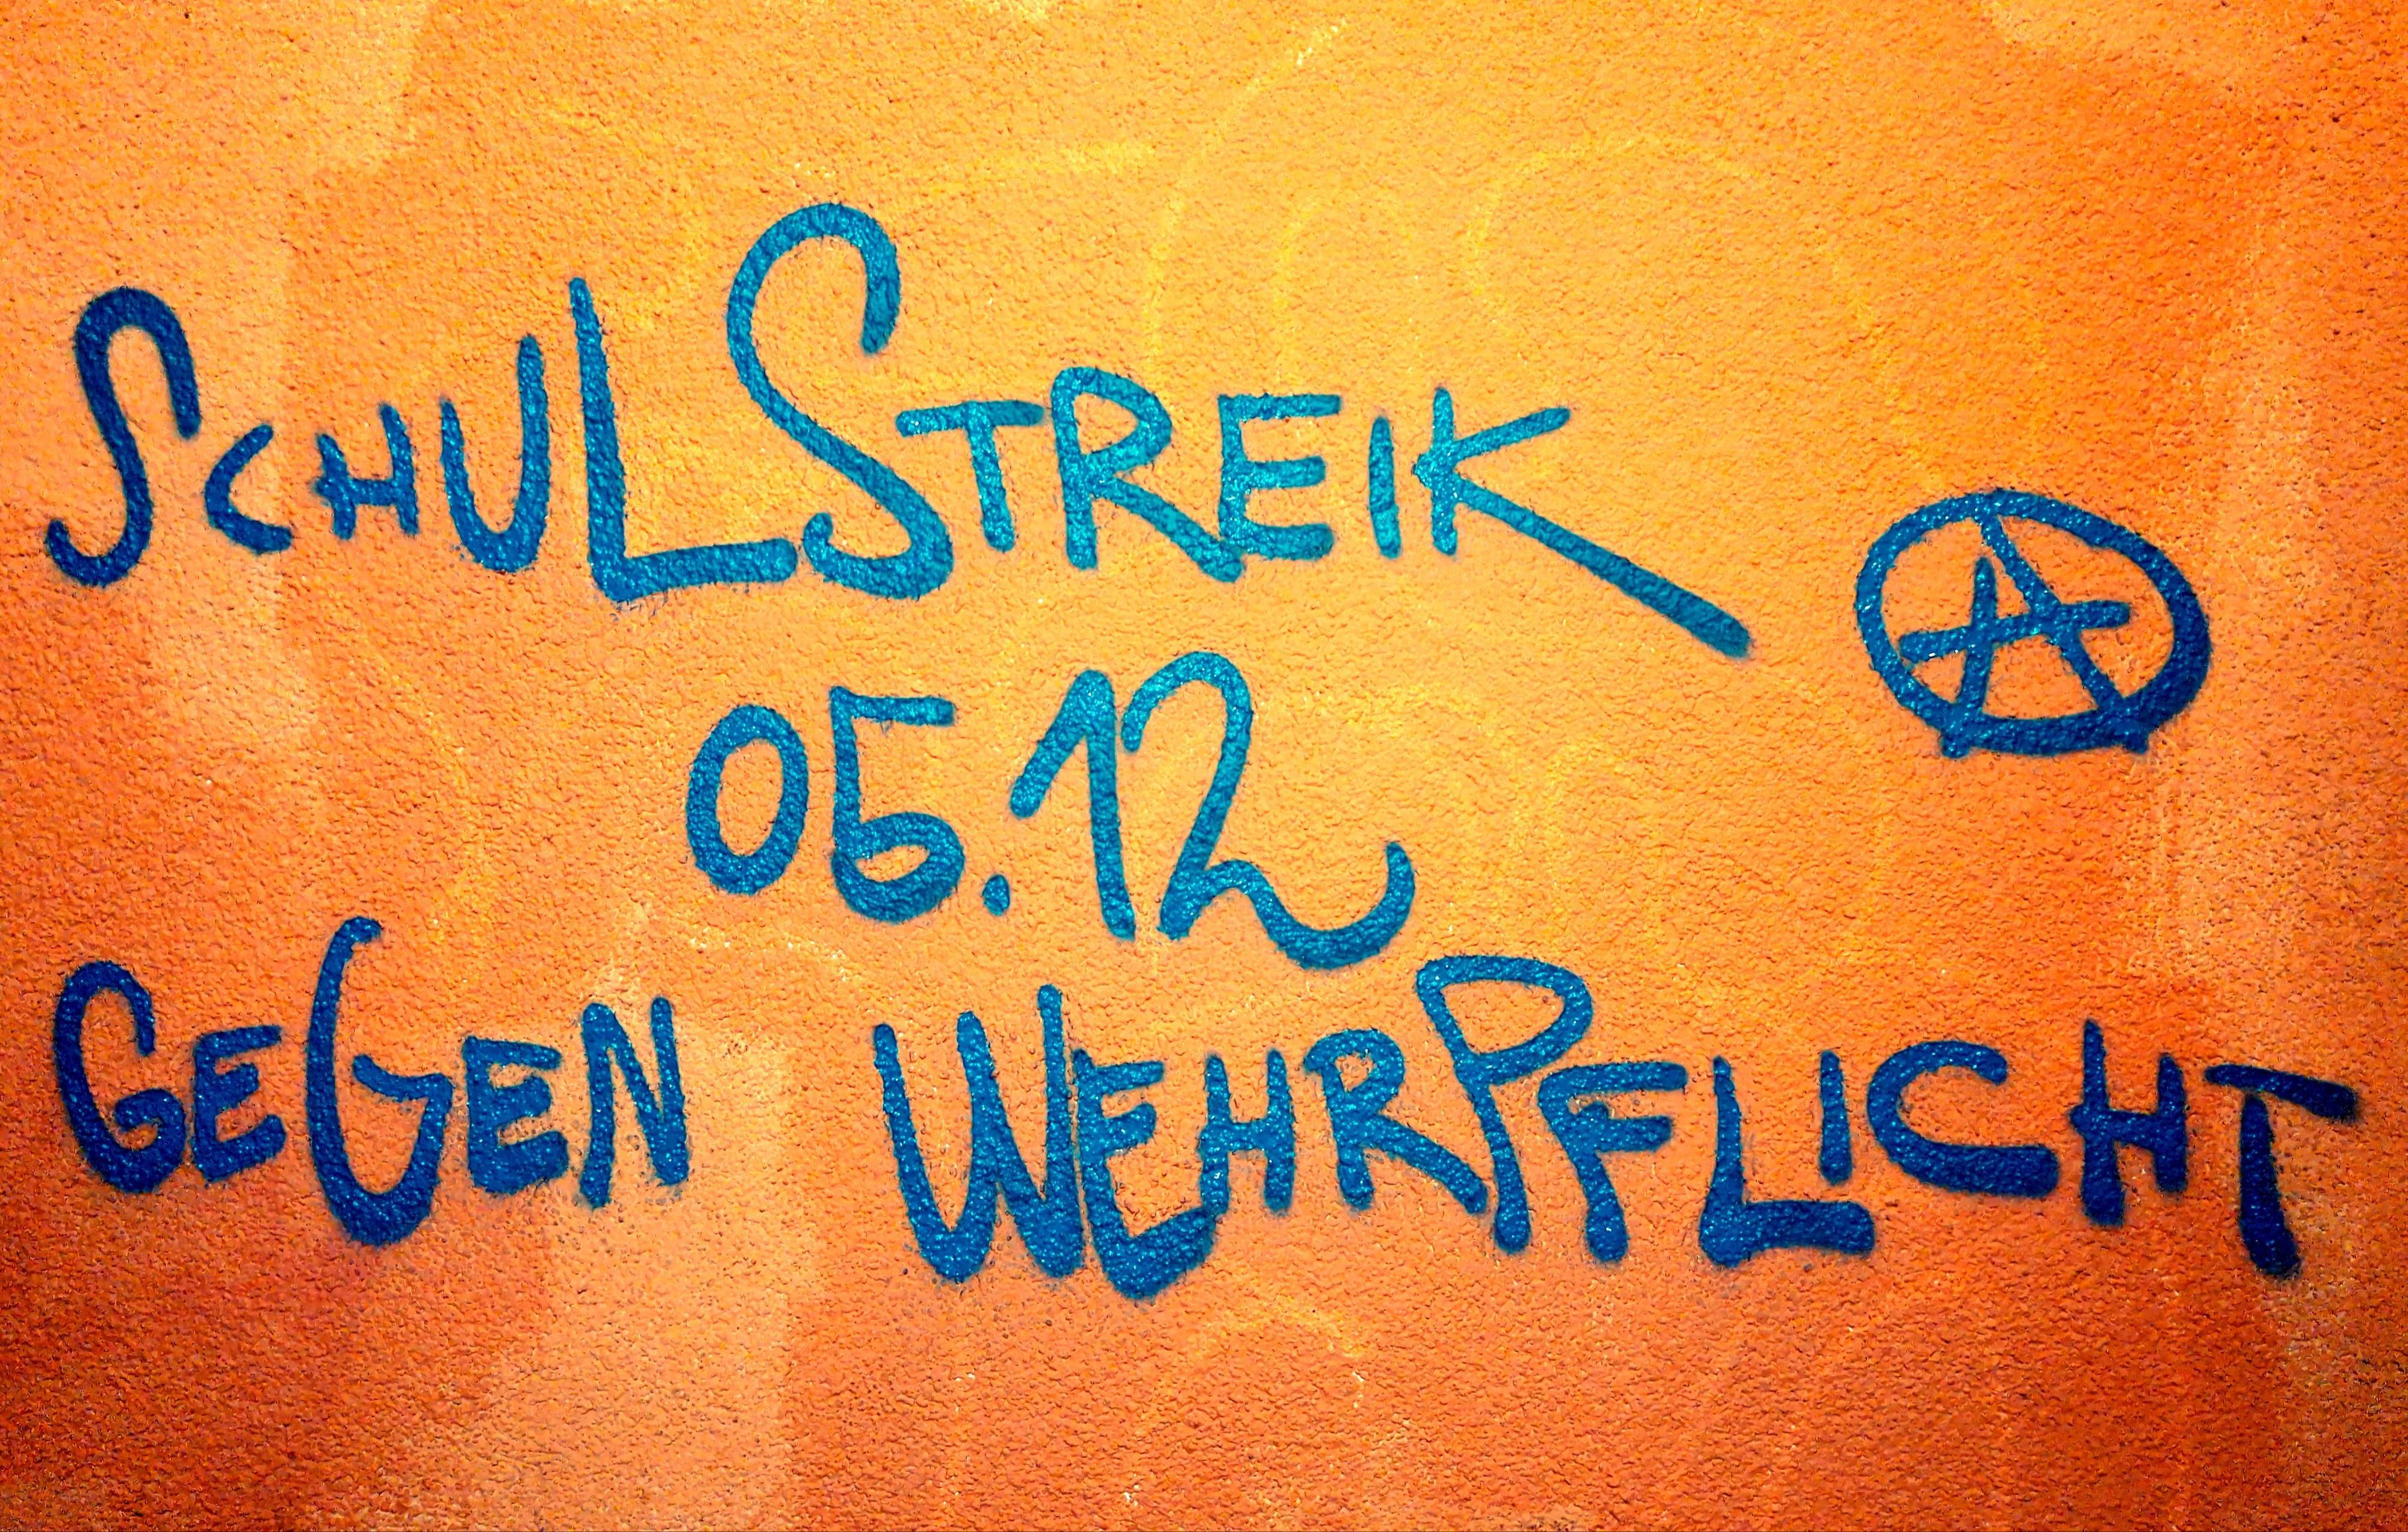 SCHULSTREIK
05.12
GEGEN WEHRPFLICHT
Ⓐ